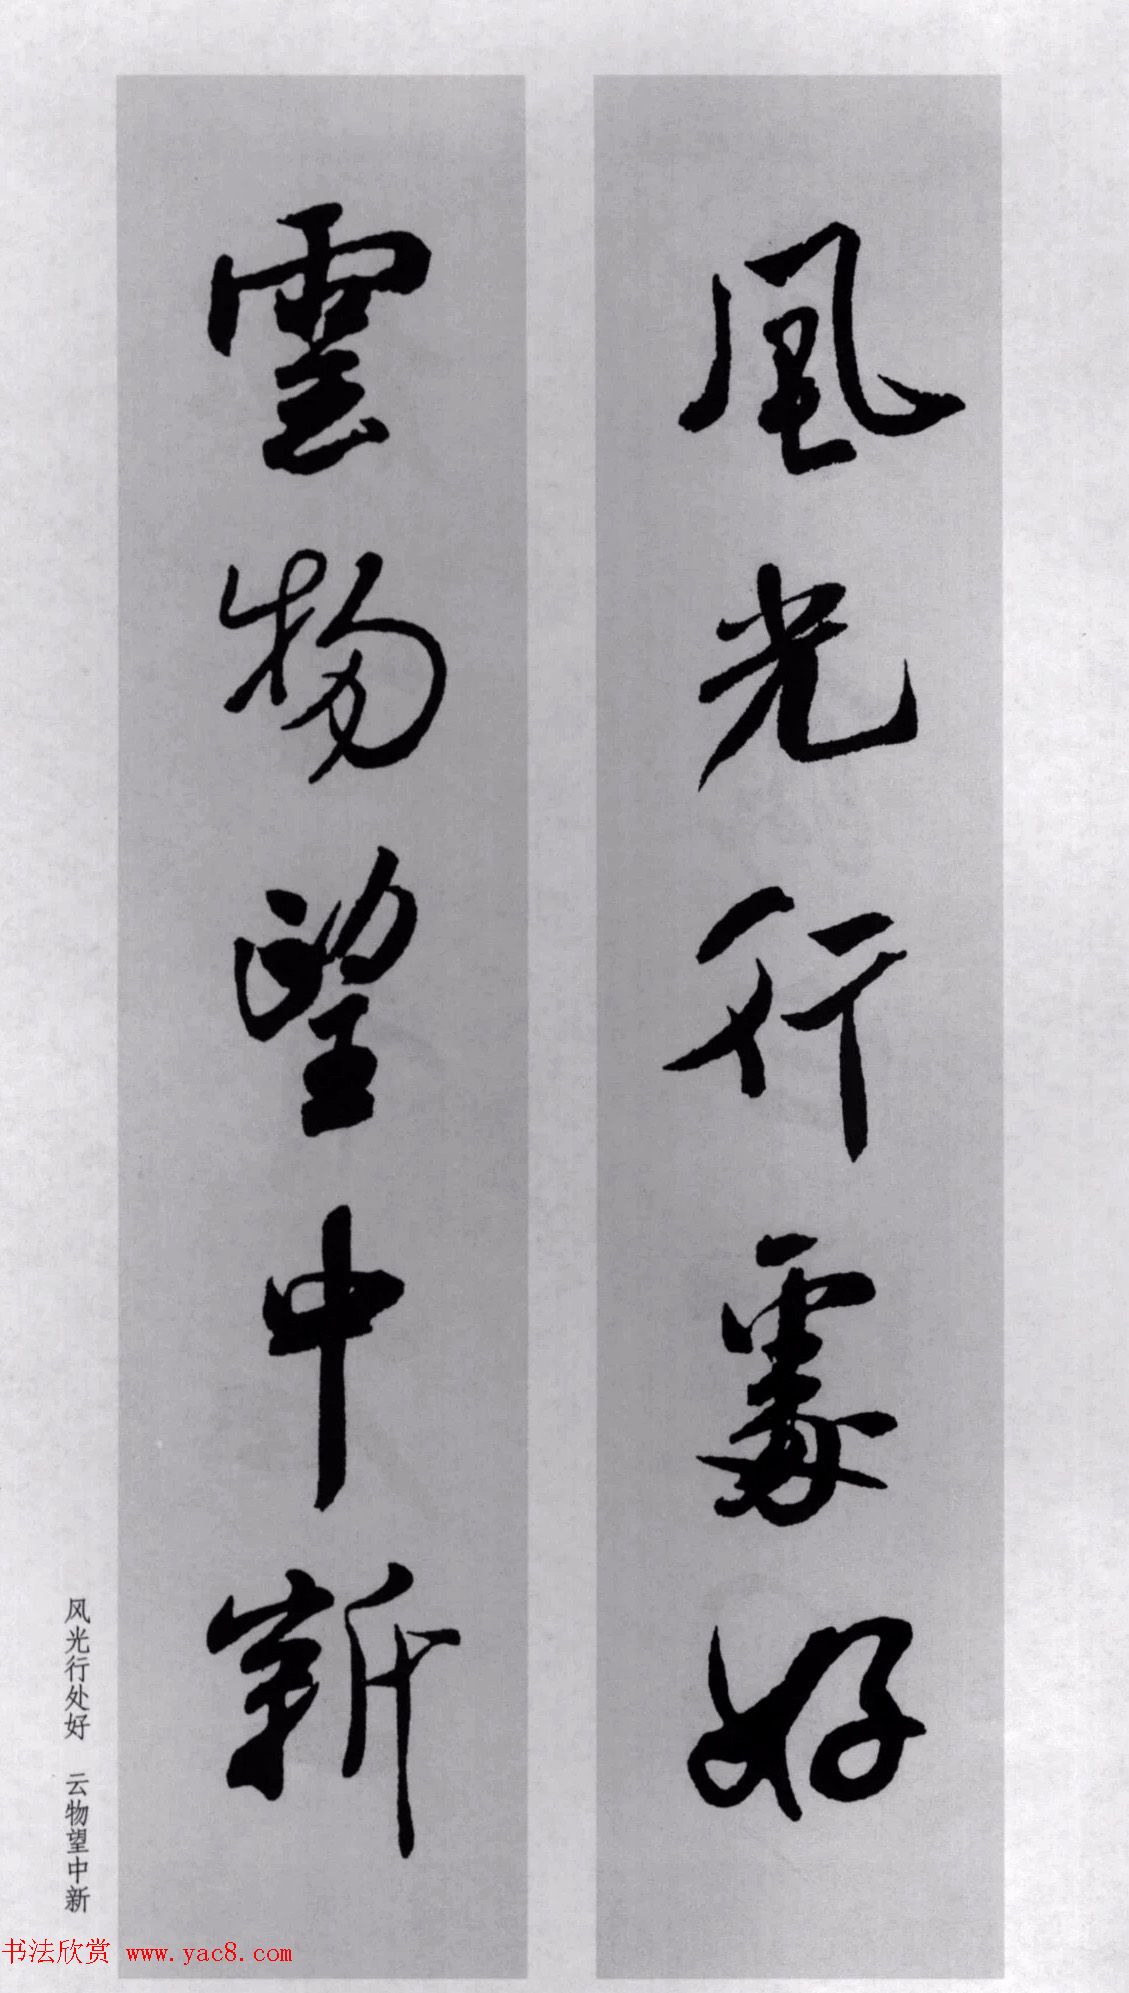 風光行處好
雲物望中新
风光行处好 云物望中新
书法欣赏 www.yac8.com